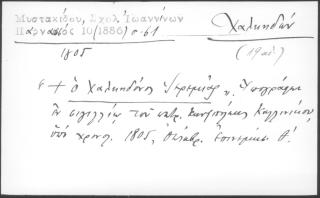 Μυστακίδου, Σχολ Ἰωαννίνων
Παρνασσός 10(1886) σ.61
Χαλκηδών
1805
(19 αἰ.)
"+ ὁ Χαλκηδόνος Ἱερεμίας". Ὑπογράφει
ἐν σιγιλλίῳ τοῦ πατρ. Κων/πόλεως Καλλινίκου
ὑπὸ χρονολ. 1805, Ὀκτωβρ. Ἐπινεμήσ. Θ΄.